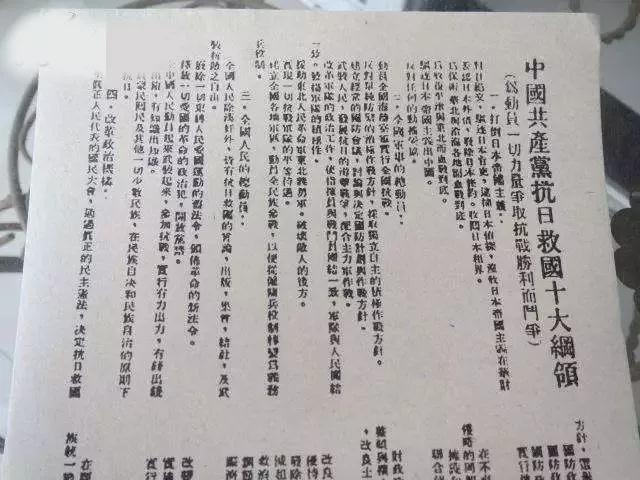 中國共產黨抗日救國十大綱領
(為動員一切力量爭取抗戰勝利而鬥爭)
一．打倒日本帝國主義：
對日絕交，驅逐日本官吏，逮捕日本偵探，沒收日本帝國主義在華財
產，否認日本外債，廢除日本條約，收回日本租界。
為保衛華北與沿海各地而血戰到底。
為收復平津與東北而血戰到底。
驅逐日本帝國主義出中國。
反對任何的動搖妥協。
二．全國軍事的總動員：
動員全國海陸空軍實行全國抗戰。
反對單純防禦的消極作戰方針，採取獨立自主的積極作戰方針。
建立經常的國防會議，討論與決定國防計劃與作戰方針。
武裝人民，發展抗日的游擊戰爭，配合主力軍作戰。
改革軍隊的政治工作，使指揮員與戰鬥員團結一致，軍隊與人民團結
一致，發揚軍隊的積極性。
援助東北人民革命軍東北義勇軍，破壞敵人的後方。
實現一切抗戰軍隊的平等待遇。
建立全國各地軍區，動員全民族參戰，以便從僱傭兵役制轉變為義務
兵役制。
三．全國人民的總動員：
全國人民除漢奸外，皆有抗日救國的言論，出版，集會，結社，及武
裝抗敵之自由。
廢除一切束縛人民愛國運動的舊法令，頒佈革命的新法令。
釋放一切愛國的革命的政治犯，開放黨禁。
全中國人民動員起來武裝起來，參加抗戰，實行有力出力，有錢出錢
有知識出知識。
蒙民回民及其他一切少數民族，在民族自決和民族自治的原則下
抗日。
四．改革政治機構：
真正人民代表的國民大會，通過真正的民主憲法，決定抗日救國
方針，選舉
國防政
國防政
實行
在不喪
侵略的同盟
擁護和
聯合朝
財政政
，改良土
改良
優待
減租
救濟
族統一